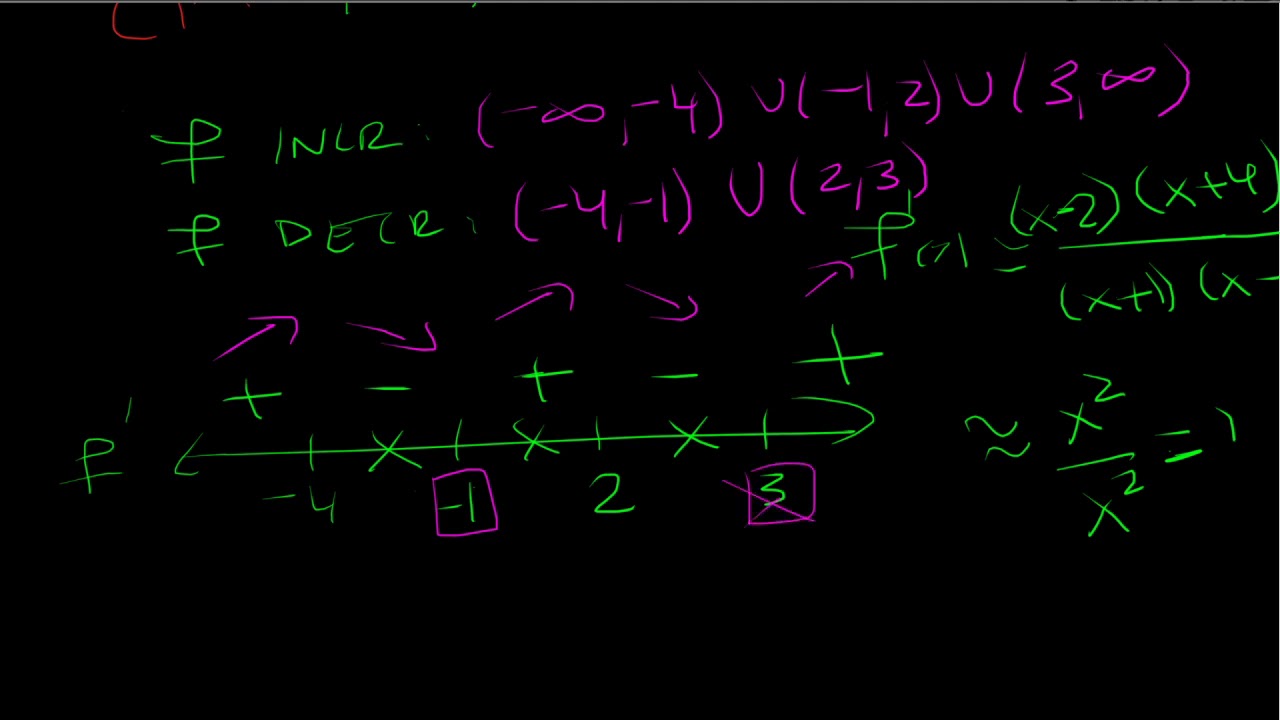 f INCR: (-∞, -4) ∪ (-1, 2) ∪ (3, ∞)
f DECR: (-4, -1) ∪ (2, 3)
f'(x) = (x-2)(x+4) / (x+1)(x-
+ - + - +
f'
-4 -1 2 3
≈ x² / x² = 1